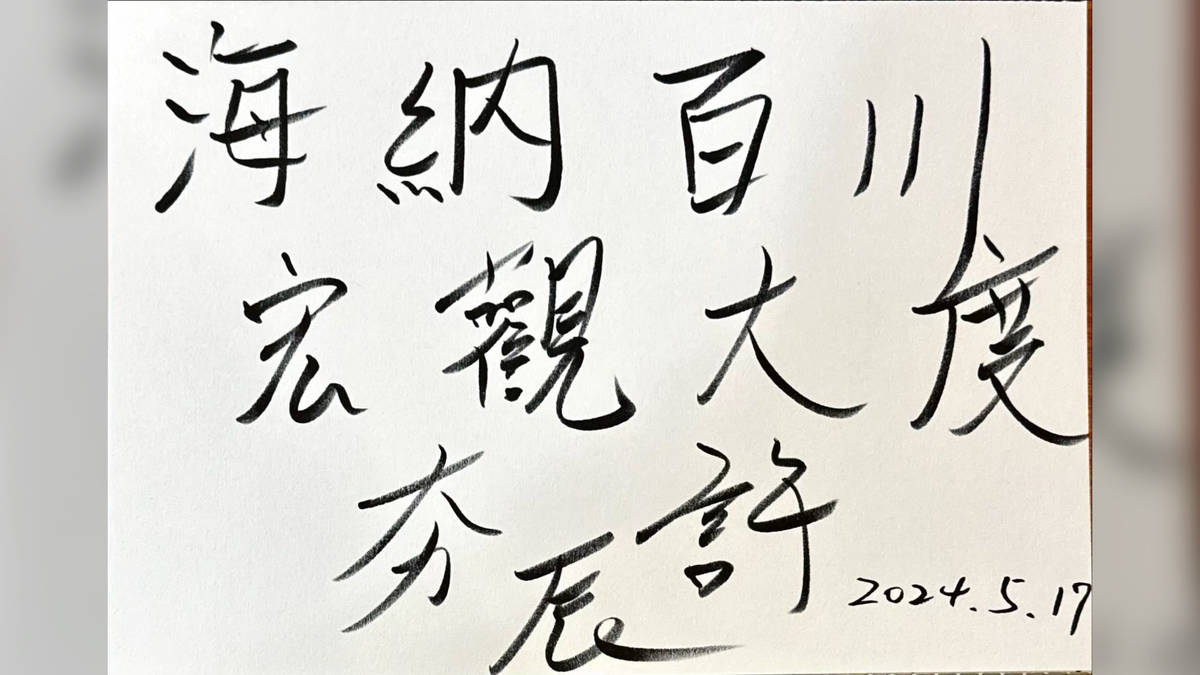 海納百川
宏觀大度
夯辰許
2024.5.17